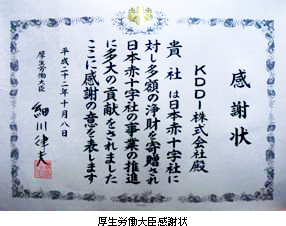 感謝状
KDDI株式会社殿
貴社は日本赤十字社に
対し多額の浄財を寄贈され
日本赤十字社の事業の推進
に多大の貢献をされました
ここに感謝の意を表します
平成二十二年十月八日
厚生労働大臣
細川律夫
厚生労働大臣感謝状